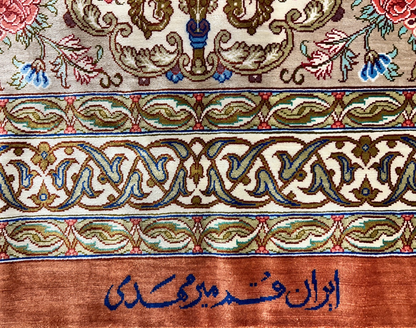 ایران قم میرمحمدی